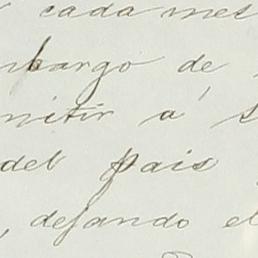 cada mes
mbargo de
mitir á s
del pais
, dejando el